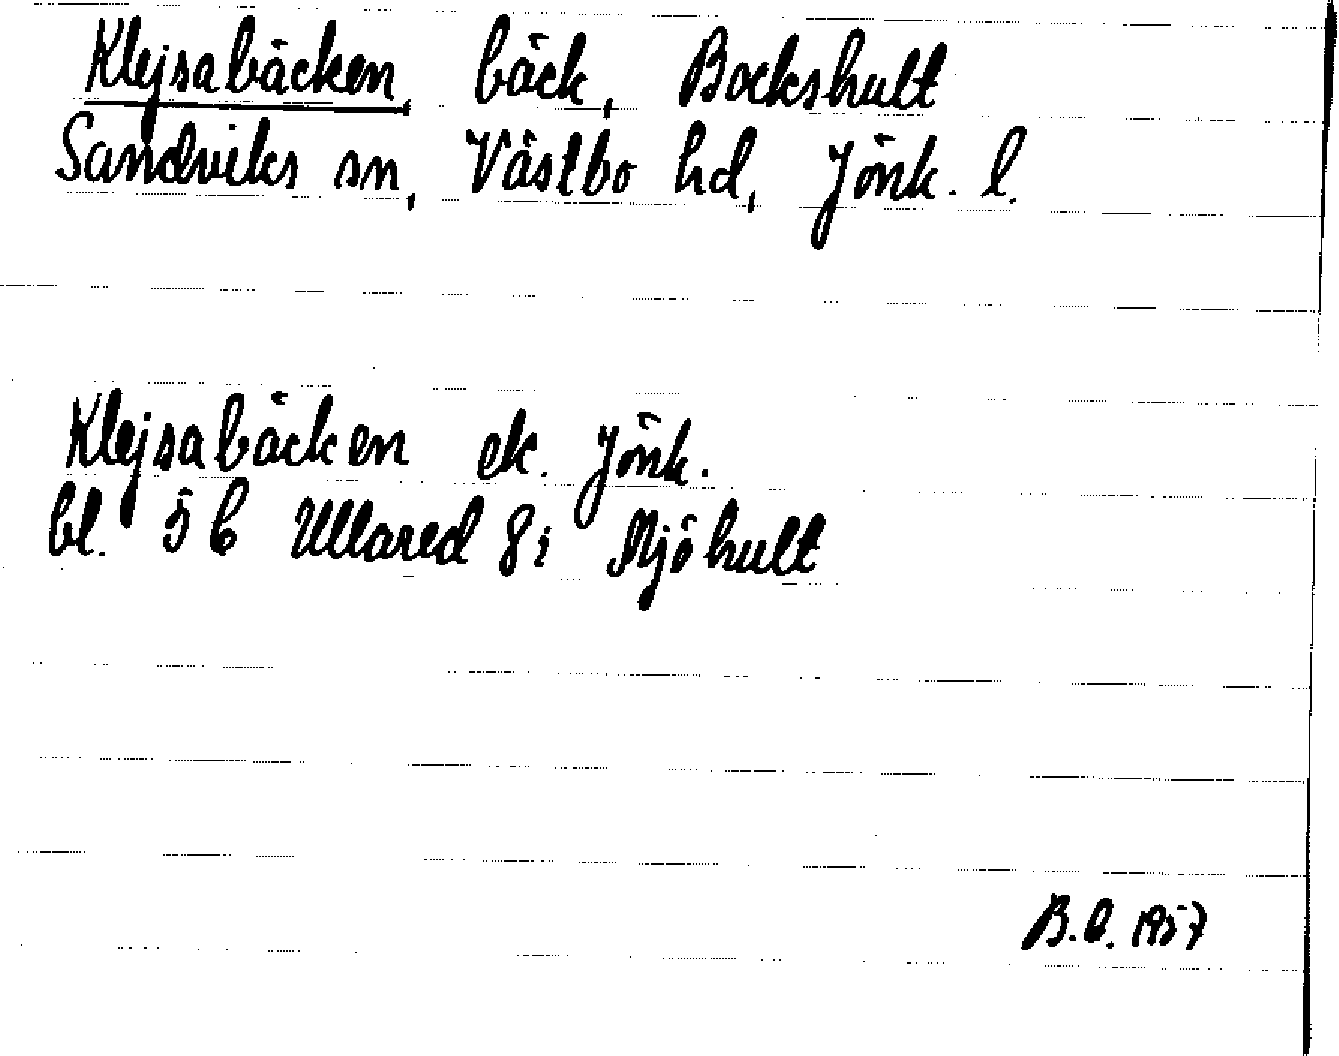 Klejsabäcken, bäck, Bockshult
Sandviks sn, Västbo hd, Jönk. l.
Klejsabäcken ek. Jönk.
bl. 5 C Ullared 8i Mjöhult
B.O. 1957